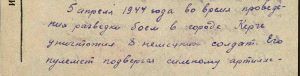 5 апреля 1944 года во время проведе-
ния разведки боем в городе Керчь
уничтожил 3 немецких солдат. Его
пулемет подвергся сильному артилле-